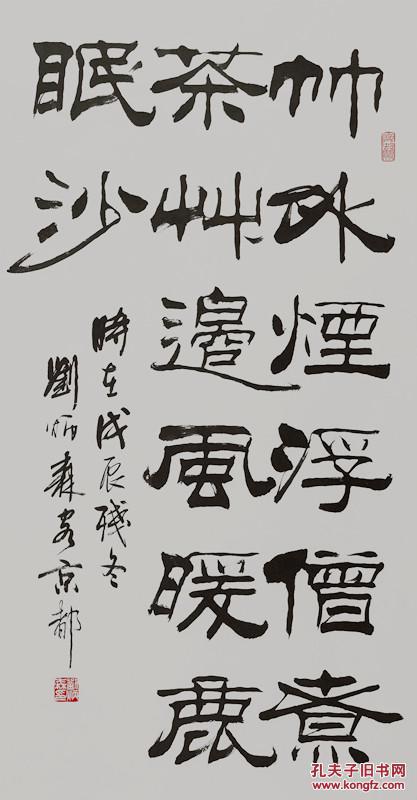 竹外煙浮僧煮
茶艸邊風暖鹿
眠沙
時在戊辰殘冬
劉炳森書京都
孔夫子旧书网
www.kongfz.com